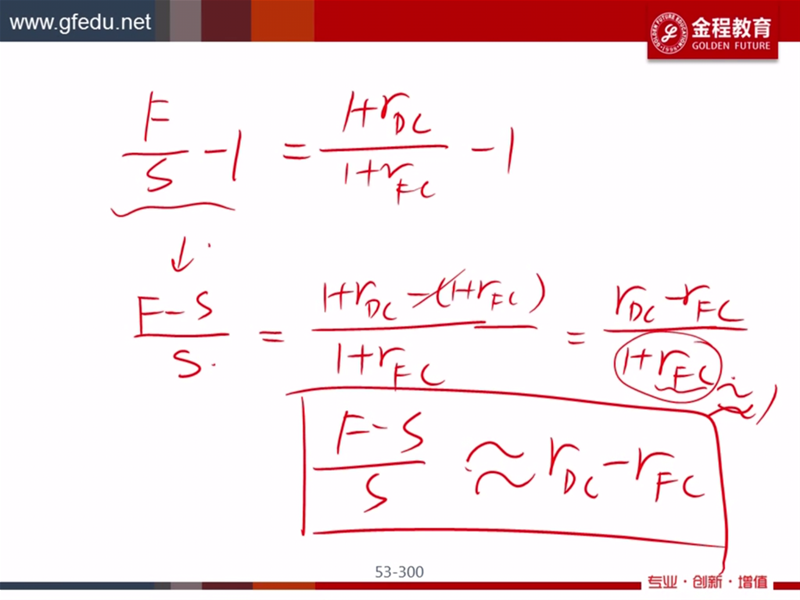 www.gfedu.net
金程教育
GOLDEN FUTURE
F/S - 1 = (1+r_DC)/(1+r_FC) - 1
↓
(F-S)/S = (1+r_DC-(1+r_FC))/(1+r_FC) = (r_DC-r_FC)/(1+r_FC) ≈ 1
(F-S)/S ≈ r_DC-r_FC
53-300
专业·创新·增值